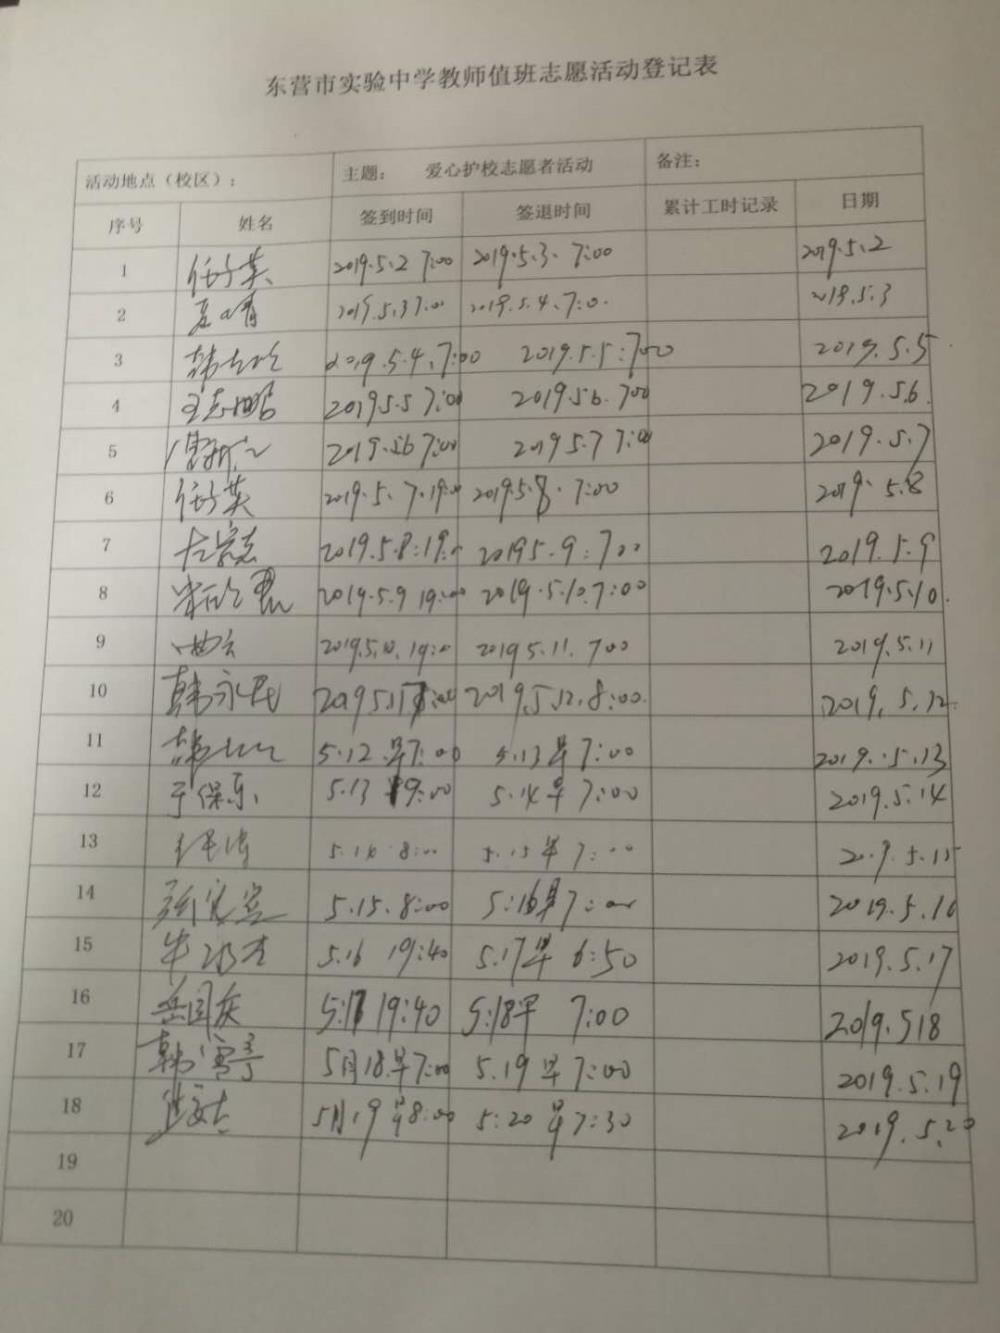 东营市实验中学教师值班志愿活动登记表
活动地点（校区）： 主题： 爱心护校志愿者活动 备注：
序号 姓名 签到时间 签退时间 累计工时记录 日期
1 2019.5.2 7:00 2019.5.3. 7:00 2019.5.2
2 2019.5.3 7:00 2019.5.4.7:0. 2019.5.3
3 2019.5.4.7:00 2019.5.5:7:00 2019.5.5
4 王志鹏 2019 5.5 7:00 2019.5.6. 700 2019.5.6.
5 2019.5.6 7:00 2019 5.7 7:00 2019.5.7
6 2019.5.7.19:00 2019.5.8. 7:00 2019.5.8
7 2019.5.8:19: 2019 5.9:700 2019.5.9
8 2019.5.9 19:00 2019.5.10.7:00 2019.5.10.
9 2019.5.10.19: 2019 5.11. 700 2019.5.11
10 韩永民 2019 5.11 :00 2019.5.12.8:00. 2019.5.12
11 5.12.早7:00 5.13早7:00 2019.5.13
12 于保乐 5.13 19:00 5.14早7:00 2019.5.14
13 5.14 8:00 5.15早7:00 2019.5.15
14 5.15.8:00 5:16早7:00 2019.5.16
15 5.16 19:40 5.17早6:50 2019.5.17
16 岳国庆 5:17 19:40 5:18早 7:00 2019.518
17 韩雪亭 5月18.早7:00 5.19早7:00 2019.5.19
18 5月19早8:00 5:20早7:30 2019.5.20
19
20